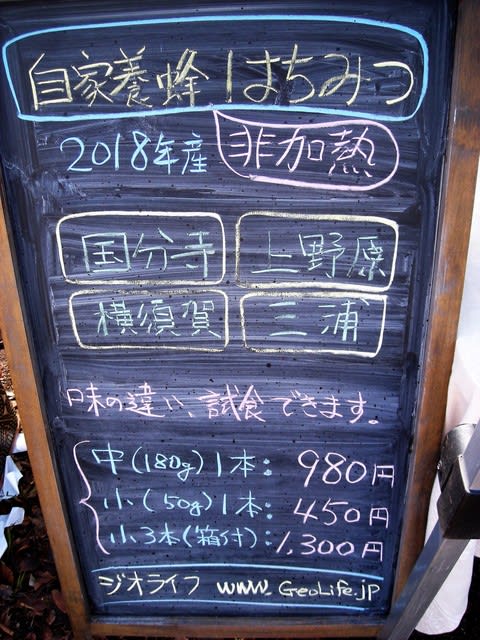 自家養蜂はちみつ
2018年産 非加熱
国分寺 上野原
横須賀 三浦
味の違い、試食できます。
中(180g)1本: 980円
小(50g)1本: 450円
小3本(箱付): 1,300円
ジオライフ www.GeoLife.jp